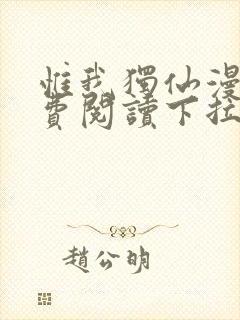 惟我獨仙漫
費閱讀下拉
趙公明